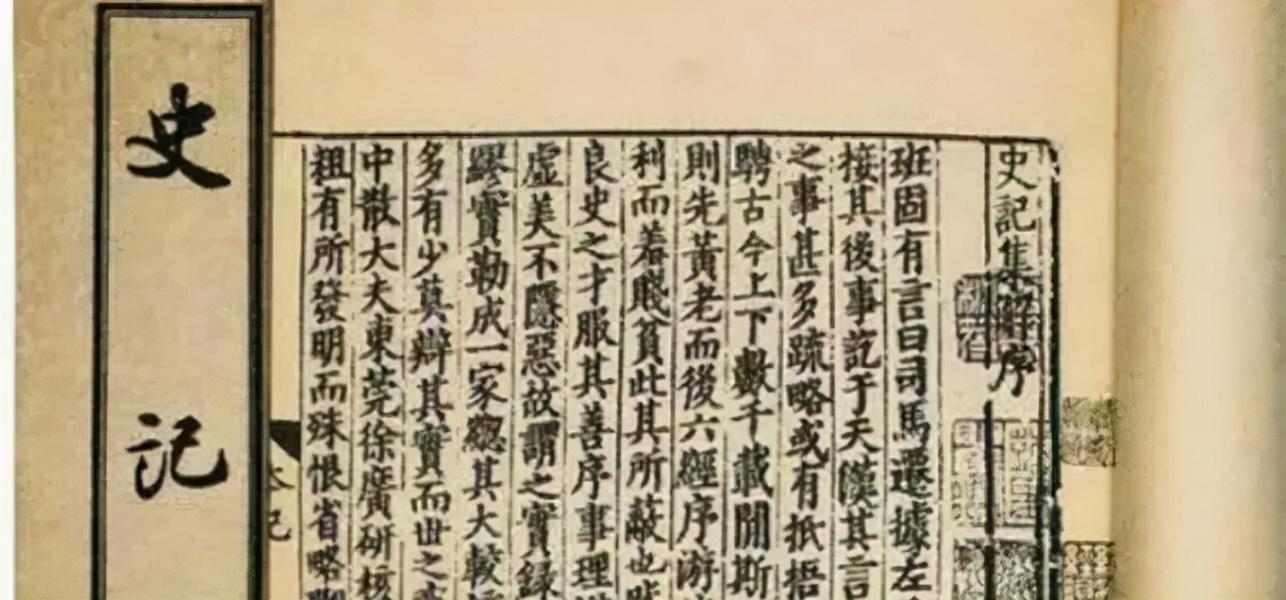 史記集解序
班固有言曰司馬遷據左
接其後事訖于天漢其言
之事甚多疏略或有抵捂
騁古今上下數千載間斯
則先黃老而後六經序游
利而羞賤貧此其所蔽也
良史之才服其善序事理
虛美不隱惡故謂之實錄
繆實勒成一家總其大較
多有少莫辯其實而世之
中散大夫東莞徐廣研核
粗有所發明而殊恨省略
史记